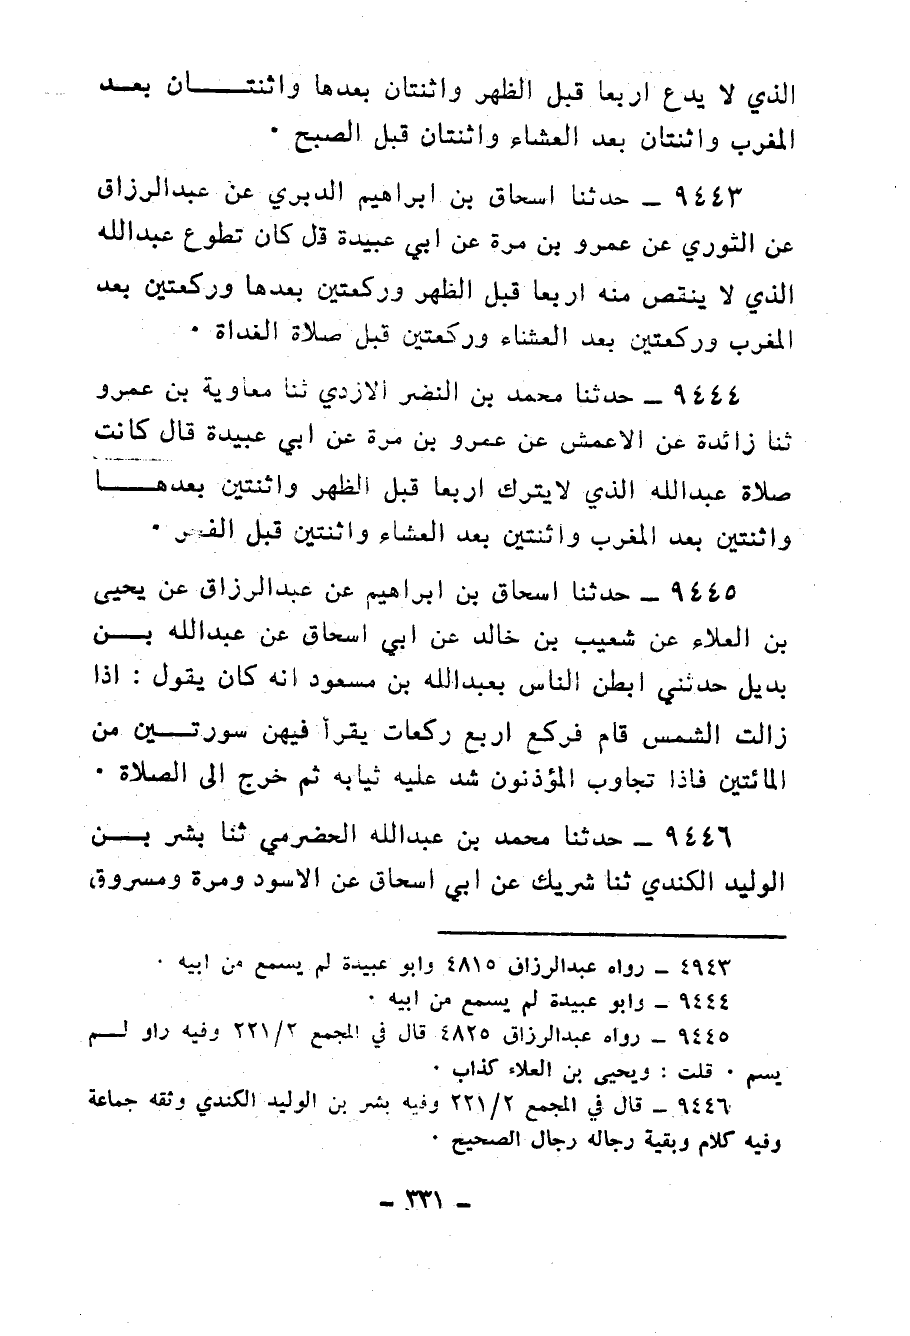 الذي لا يدع اربعا قبل الظهر واثنتان بعدها واثنتـــان بعـد
المغرب واثنتان بعد العشاء واثنتان قبل الصبح ٠
٩٤٤٣ ــ حدثنا اسحاق بن ابراهيم الدبري عن عبدالرزاق
عن الثوري عن عمرو بن مرة عن ابي عبيدة قل كان تطوع عبدالله
الذي لا ينتقص منه اربعا قبل الظهر وركعتين بعدها وركعتين بعد
المغرب وركعتين بعد العشاء وركعتين قبل صلاة الغداة ٠
٩٤٤٤ ــ حدثنا محمد بن النضر الازدي ثنا معاوية بن عمرو
ثنا زائدة عن الاعمش عن عمرو بن مرة عن ابي عبيدة قال كانت
صلاة عبدالله الذي لايترك اربعا قبل الظهر واثنتين بعدهــا
واثنتين بعد المغرب واثنتين بعد العشاء واثنتين قبل الفجر ٠
٩٤٤٥ ــ حدثنا اسحاق بن ابراهيم عن عبدالرزاق عن يحيى
بن العلاء عن شعيب بن خالد عن ابي اسحاق عن عبدالله بــن
بديل حدثني ابطن الناس بعبدالله بن مسعود انه كان يقول : اذا
زالت الشمس قام فركع اربع ركعات يقرأ فيهن سورتــين من
المائتين فاذا تجاوب المؤذنون شد عليه ثيابه ثم خرج الى الصلاة ٠
٩٤٤٦ ــ حدثنا محمد بن عبدالله الحضرمي ثنا بشر بــن
الوليد الكندي ثنا شريك عن ابي اسحاق عن الاسود ومرة ومسروق
٤٩٤٣ ــ رواه عبدالرزاق ٤٨١٥ وابو عبيدة لم يسمع من ابيه ٠
٩٤٤٤ ــ وابو عبيدة لم يسمع من ابيه ٠
٩٤٤٥ ــ رواه عبدالرزاق ٤٨٢٥ قال في المجمع ٢٢١/٢ وفيه راو لـم
يسم ٠ قلت : ويحيى بن العلاء كذاب ٠
٩٤٤٦ ــ قال في المجمع ٢٢١/٢ وفيه بشر بن الوليد الكندي وثقه جماعة
وفيه كلام وبقية رجاله رجال الصحيح ٠
ــ ٣٣١ ــ